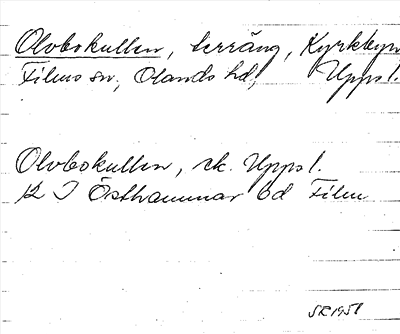 Olvbokullen, terräng, Kyrkbyn
Films sn, Olands hd, Upps l.
Olvbokullen, sk. Upps l.
12 I Östhammar 6d Film
SR 1951